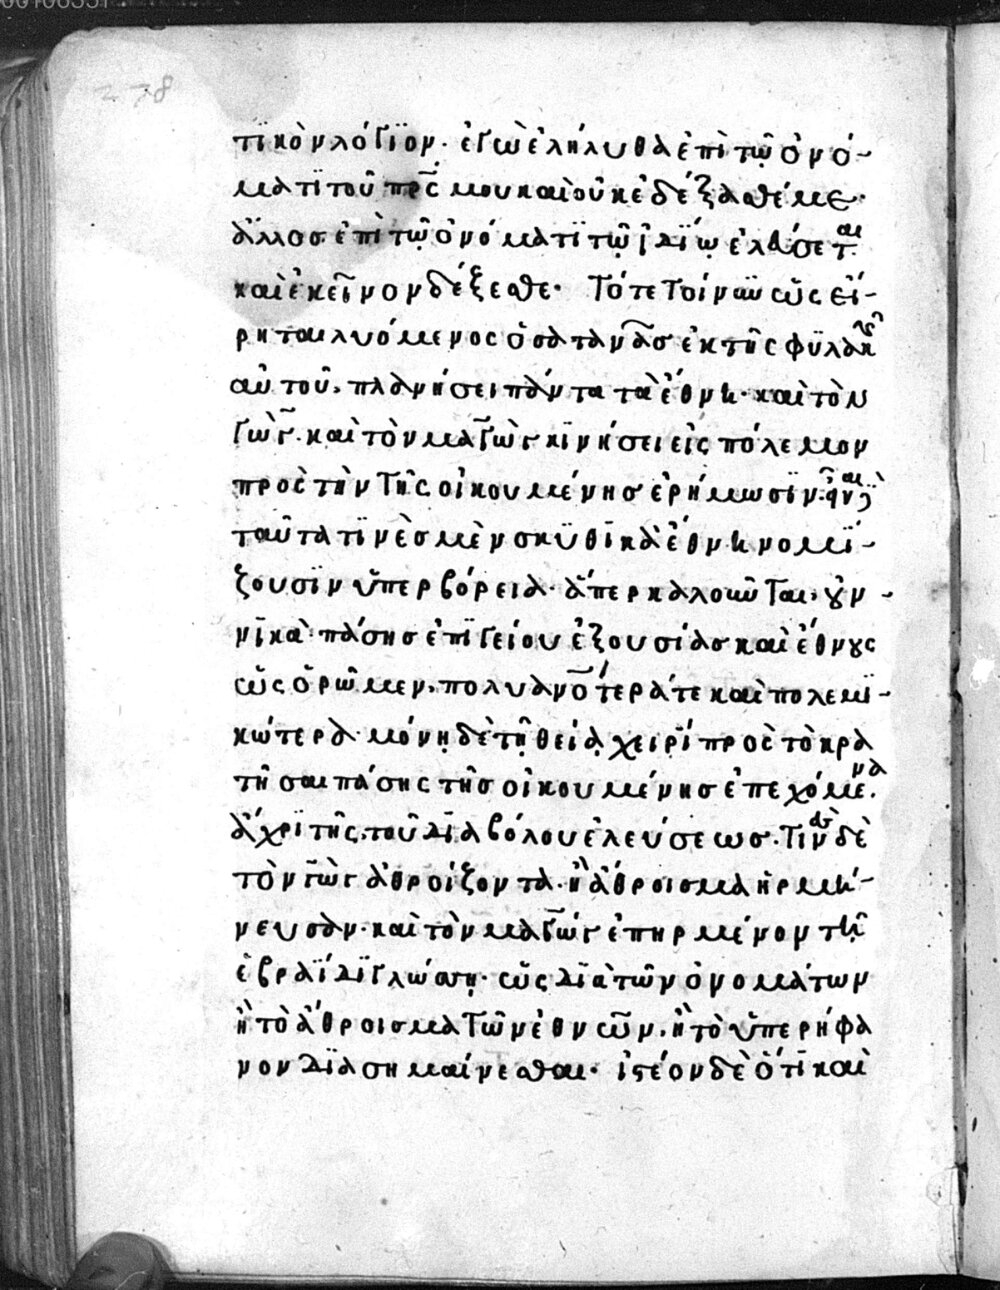 278
τϊκὸν λόγϊον· ἐγὼ ἐλήλυθα ἐπὶ τῷ ὀνό-
ματϊ τοῦ πρ̅ς μου καὶ οὐκ ἐδέξασθέ με·
ἄλλος ἐπὶ τῷ ὀνόματϊ τῷ ἰδΐῳ ἐλεύσεται
καὶ ἐκεῖνον δέξεσθε· Τότε τοίνυν ὡς εἴ-
ρηται λυόμενος ὁ σατανᾶς ἐκ τῆς φϋλακῆς
αὐτοῦ, πλανήσει πάντα τὰ ἔθνη· καὶ τὸν
Γὼγ· καὶ τὸν μαγὼγ κϊνήσει εἰς πόλεμον
πρὸς τὴν τῆς οἰκουμένης ἐρήμωσϊν· εἶναι δὲ
ταῦτα τϊνὲς μὲν σκϋθϊκὰ ἔθνη νομΐ-
ζουσϊν ὑπερβόρεια· ἅπερ καλοῦνται, οὐν-
νϊκὰ· πάσης ἐπϊγείου ἐξουσίας καὶ ἔθνους
ὡς ὁρῶμεν, πολυανο̅τερά τε καὶ πολεμϊ-
κώτερα· μόνῃ δὲ τῇ θείᾳ χειρῒ πρὸς τὸ κρα
τῆσαι πάσης τῆς οἰκουμένης ἐπεχόμενα·
ἄχρϊ τῆς, τοῦ δϊαβόλου ἐλεύσεως· Τινὰς δὲ
τὸν γὼγ ἀθροίζοντα· ἢ ἄθροισμα ἡρμή-
νευσαν· καὶ τὸν μαγώγ ἐπηρμένον τῇ
ἑβραΐδϊ γλώσσῃ· ὡς δϊὰ τῶν ὀνομάτων
ἢ τὸ ἄθροισμα τῶν ἐθνῶν, ἢ τὸ ὑπερήφα
νον δϊασημαίνεσθαι· ἰστέον δὲ ὅτϊ καὶ